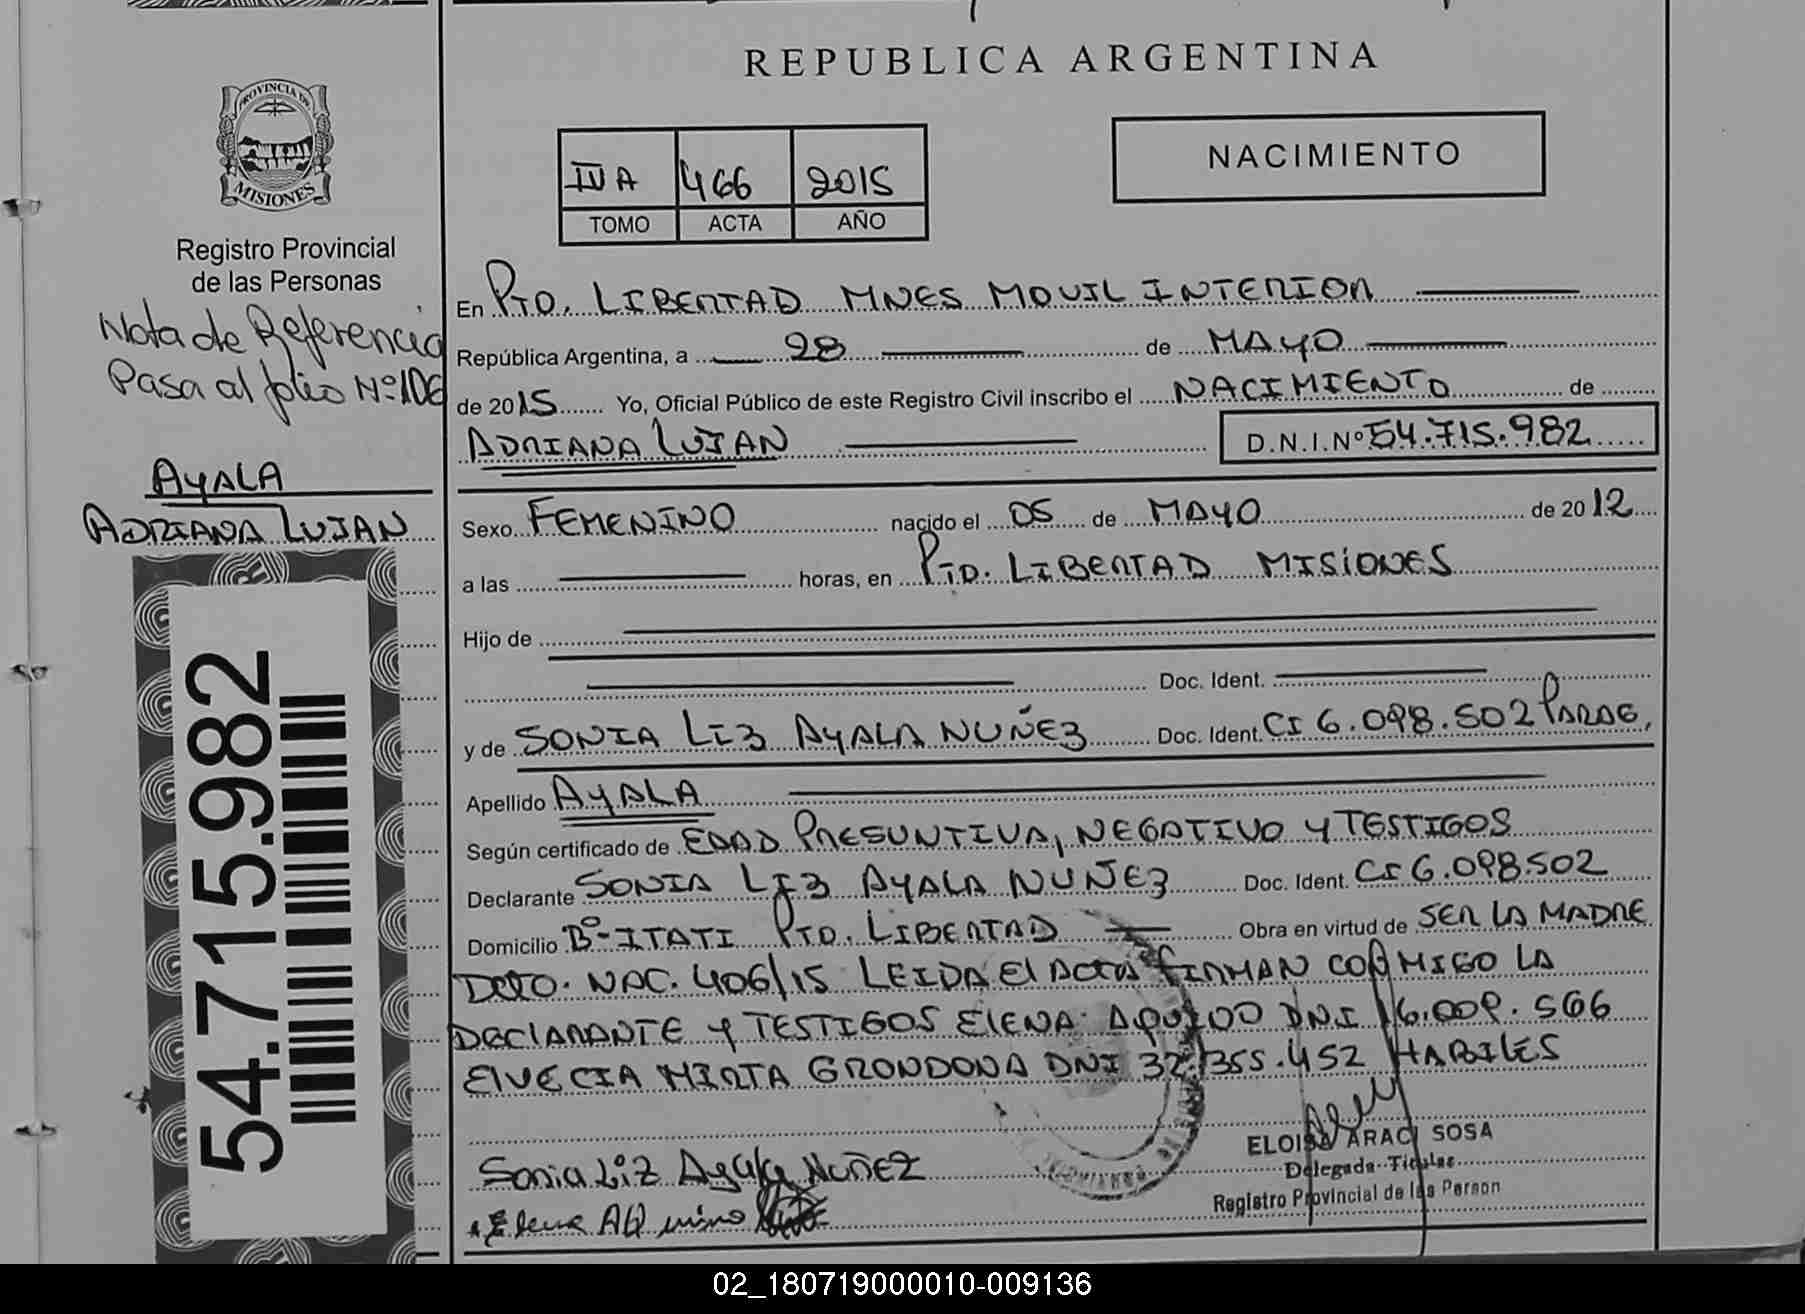 REPUBLICA ARGENTINA
PROVINCIA DE
MISIONES
Registro Provincial
de las Personas
Nota de Referencia
Pasa al folio Nº 106
AYALA
ADRIANA LUJAN
54.715.982
IVA 466 2015
TOMO ACTA AÑO
NACIMIENTO
En PTO. LIBERTAD MNES MOVIL INTERIOR
República Argentina, a 28 de MAYO
de 2015 Yo, Oficial Público de este Registro Civil inscribo el NACIMIENTO de
ADRIANA LUJAN D.N.I.Nº 54.715.982
Sexo FEMENINO nacido el 05 de MAYO de 2012
a las horas, en PTO. LIBERTAD MISIONES
Hijo de
Doc. Ident.
y de SONIA LIZ AYALA NUÑEZ Doc. Ident. CI 6.098.502 PARAG.
Apellido AYALA
Según certificado de EDAD PRESUNTIVA, NEGATIVO Y TESTIGOS
Declarante SONIA LIZ AYALA NUÑEZ Doc. Ident. CI 6.098.502
Domicilio Bº-ITATI PTO. LIBERTAD Obra en virtud de SER LA MADRE
DCTO. NAC. 406/15 LEIDA El ACTA FIRMAN CONMIGO LA
DECLARANTE Y TESTIGOS ElENA DNI
ElVECIA MIRTA GRONDONA DNI 32.355.452 HABILES
ELOISA ARACI SOSA
Sonia Liz Ayala NuñEZ
Delegada Titular
Registro Provincial de las Person
Elena
02_180719000010-009136